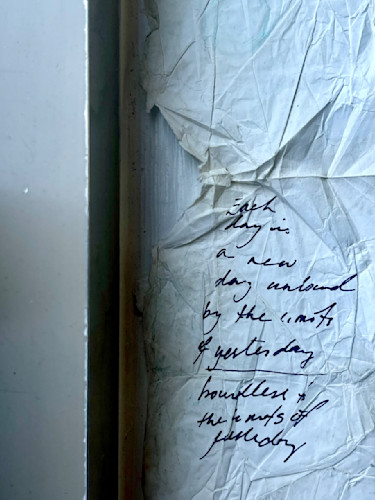 Each
day is
a new
day unbound
by the limits
of yesterday
boundless is
the limits of
yesterday